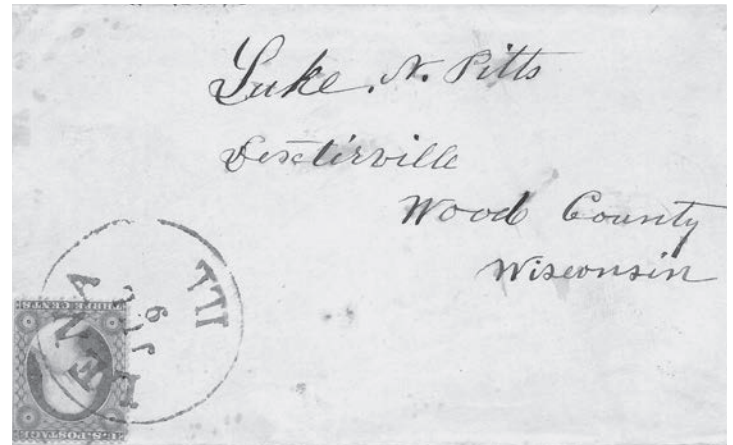 Luke. N. Pitts
Dexterville
Wood County
Wisconsin
LENA ILL
U.S. POSTAGE
THREE CENTS